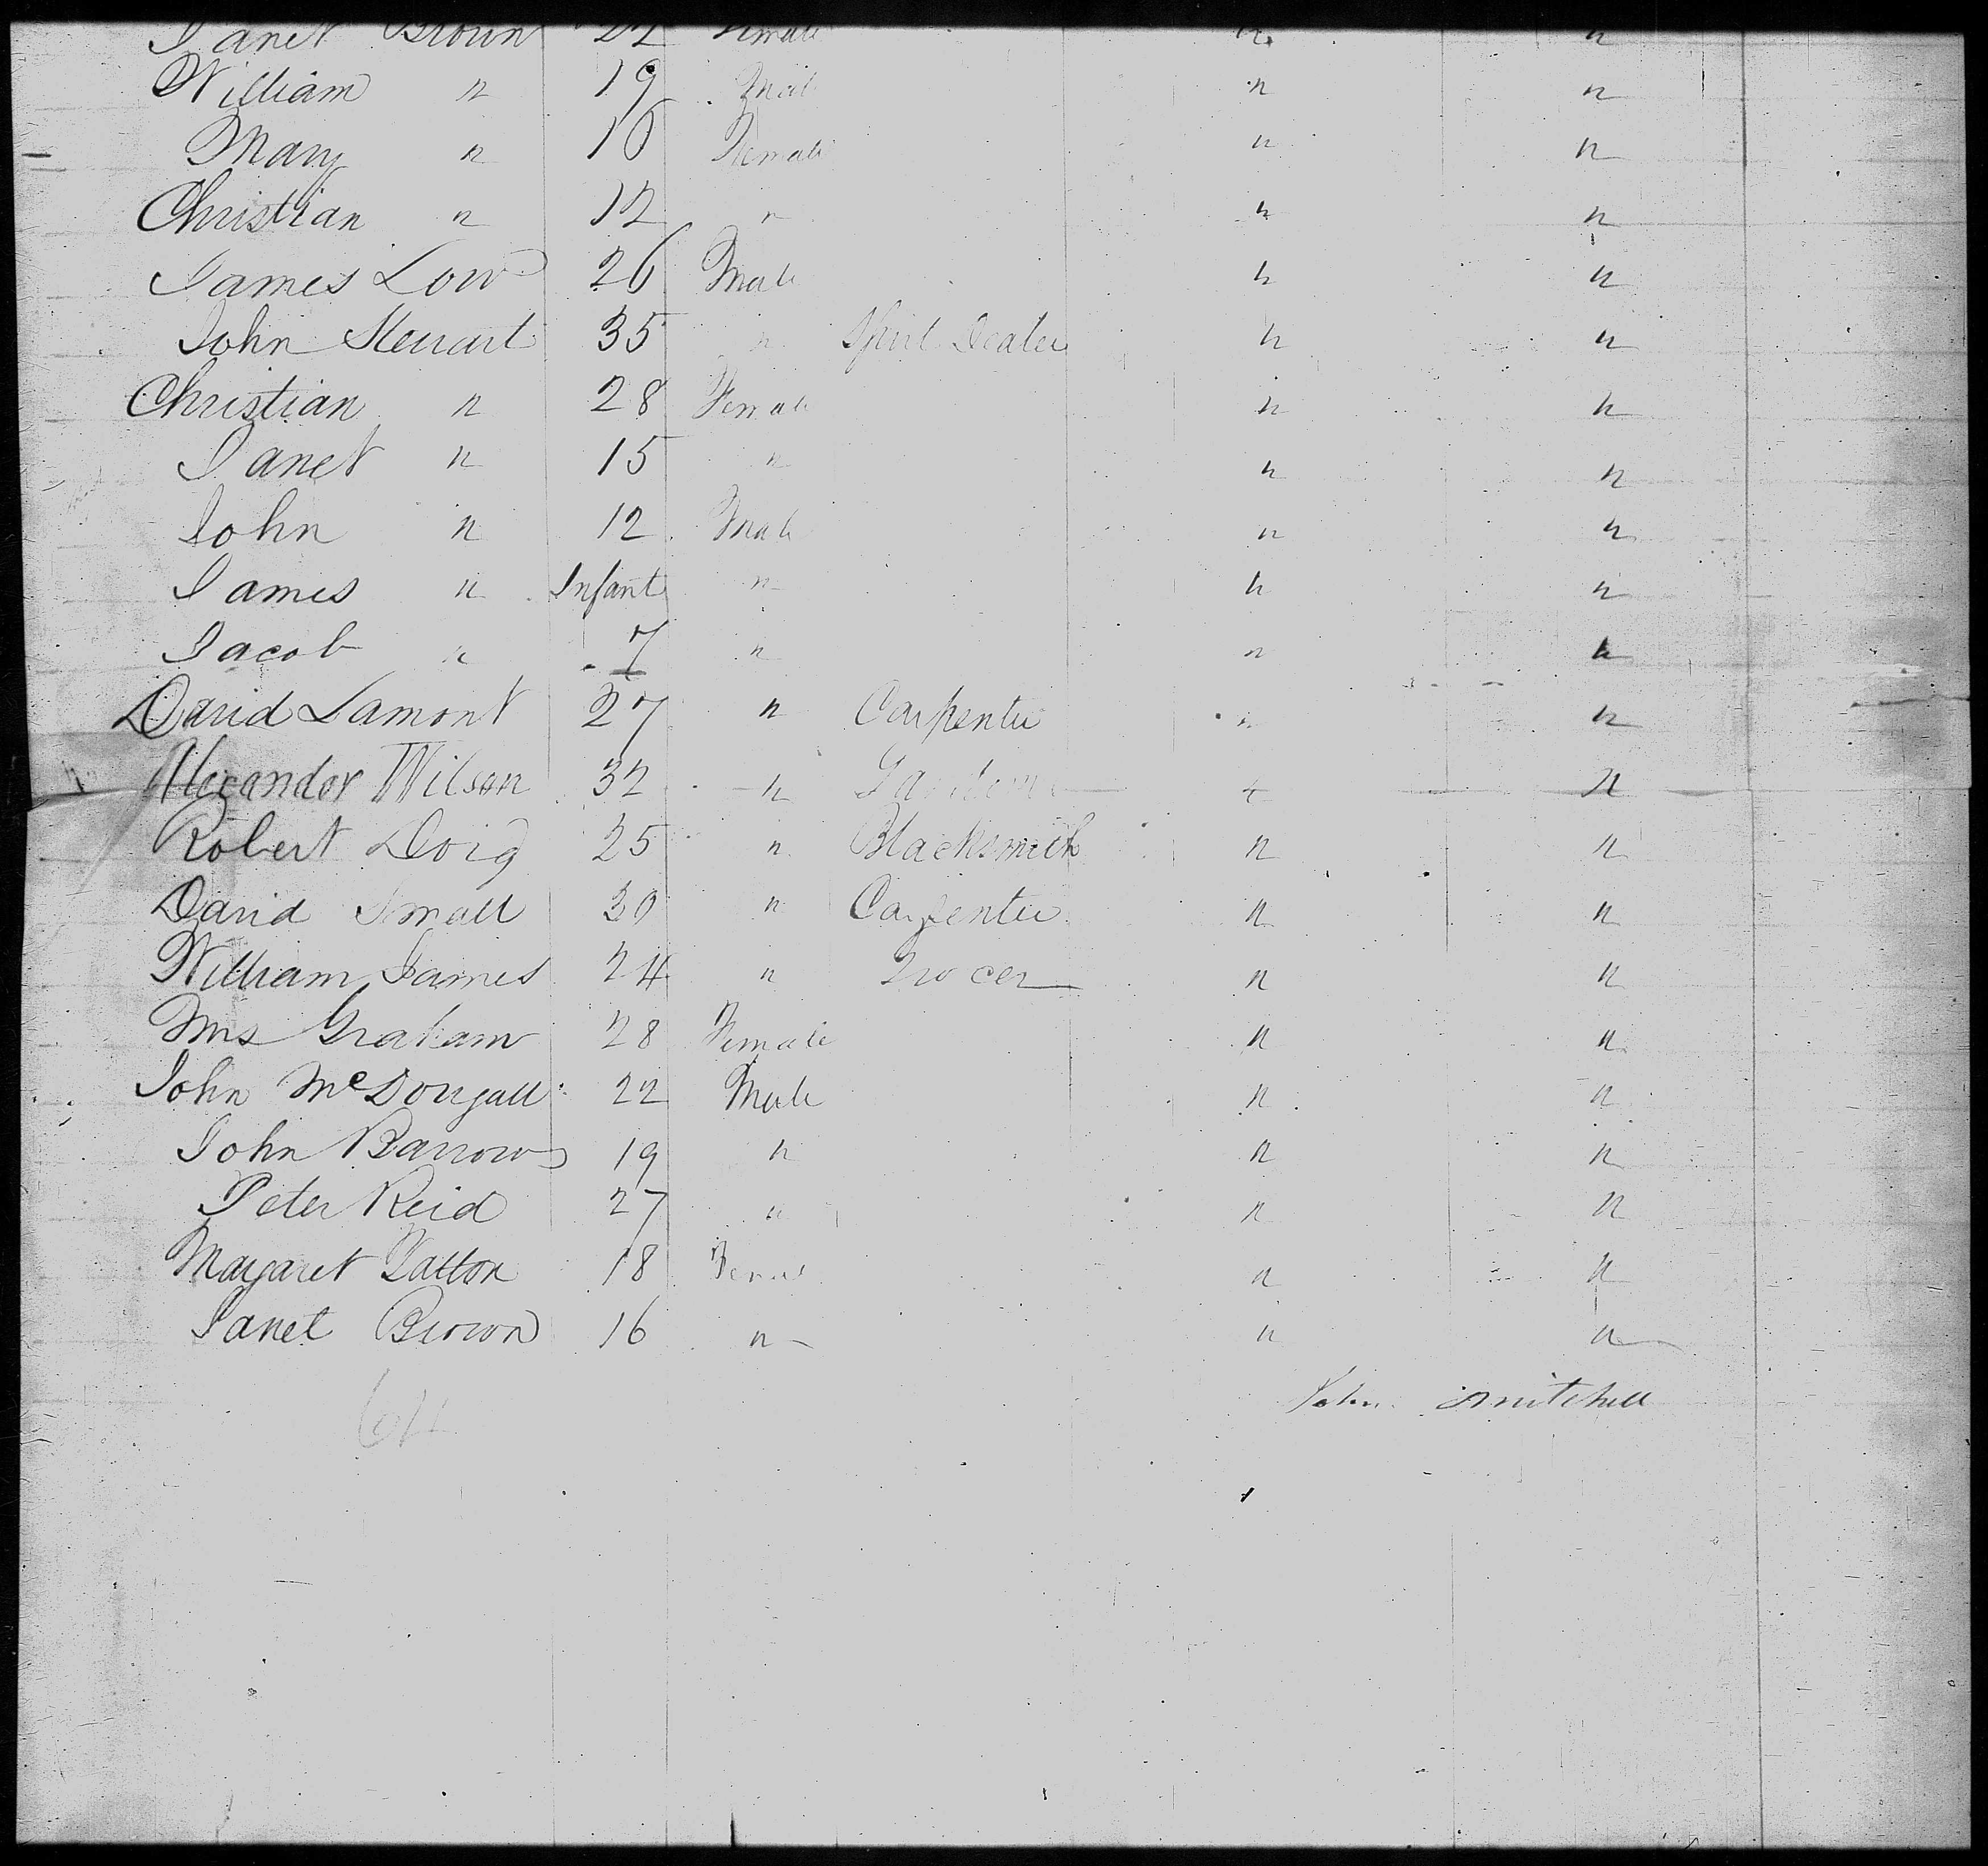 Janet Brown 22 Female " "
William " 19 Male " "
Mary " 16 Female " "
Christian " 12 " " "
James Low 26 Male " "
John Steuart 35 " Spirit Dealer " "
Christian " 28 Female " "
Janet " 15 " " "
John " 12 Male " "
James " Infant " " "
Jacob " 7 " " "
David Lamont 27 " Carpenter " "
Alexander Wilson 32 " " "
Robert Doig 25 " Blacksmith " "
David Small 30 " Carpenter " "
William James 24 " Grocer " "
Mrs Graham 28 Female " "
John McDougall 22 Male " "
John Barrow 19 " " "
Peter Reid 27 " " "
Margaret 18 " "
Janet Brown 16 " " "
John Mitchell